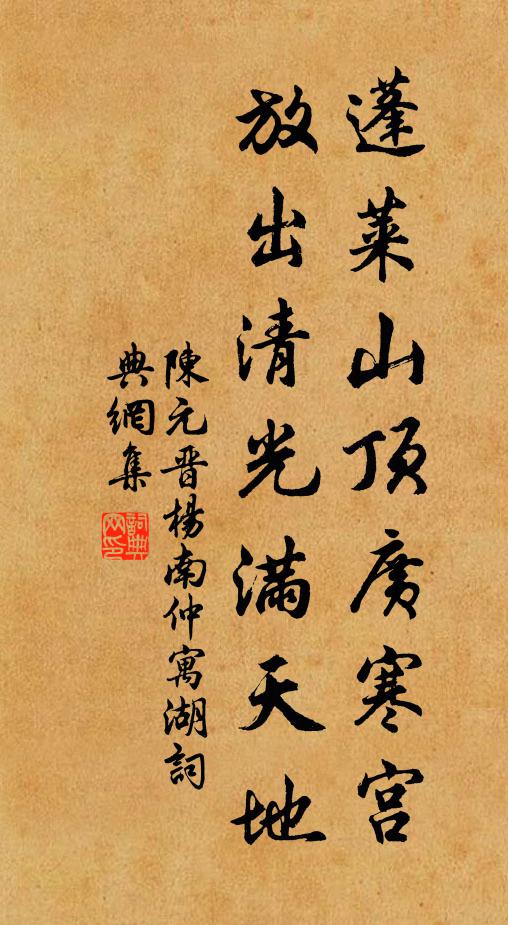 蓬萊山頂廣寒宮
放出清光滿天地
陳元晋楊南仲寓湖詞
典網集
詞典网印